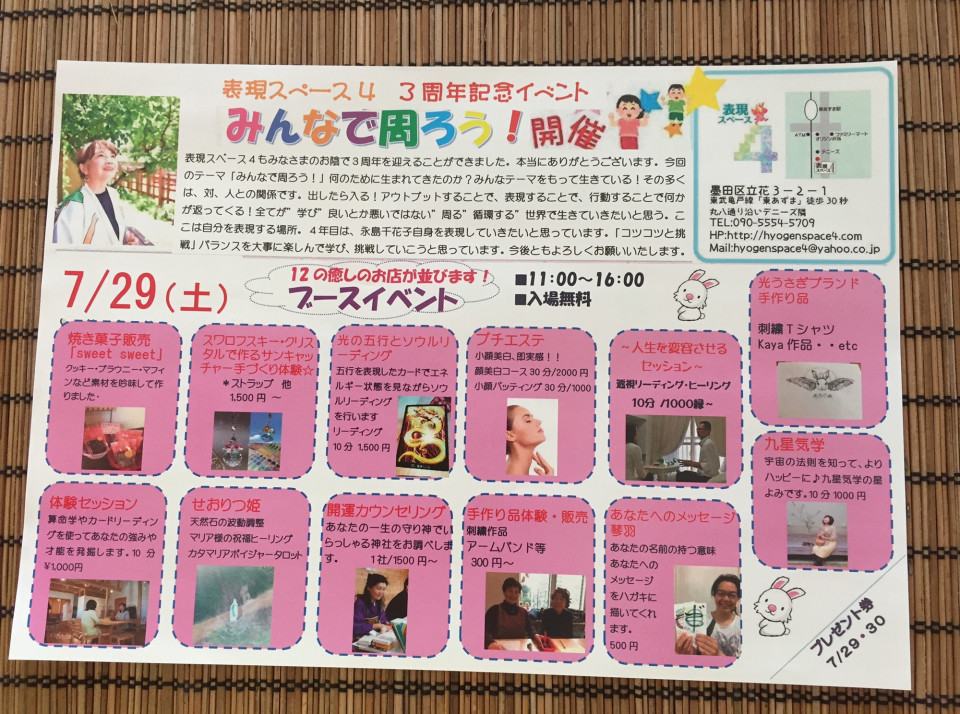 表現スペース4　3周年記念イベント
みんなで周ろう！開催
表現スペース4もみなさまのお陰で3周年を迎えることができました。本当にありがとうございます。今回
のテーマ「みんなで周ろう！」何のために生まれてきたのか？みんなテーマをもって生きている！その多く
は、対、人との関係です。出したら入る！アウトプットすることで、表現することで、行動することで何か
が返ってくる！全てが”学び”良いとか悪いではない”周る”循環する”世界で生きていきたいと思う。こ
こは自分を表現する場所。4年目は、永島千花子自身を表現していきたいと思っています。「コツコツと挑
戦」バランスを大事に楽しんで学び、挑戦していこうと思っています。今後ともよろしくお願いいたします。
表現
スペース
4
東あずま駅
ファミリーマート
オリジン弁当
デニーズ
表現
スペース
墨田区立花3－2－1
東武亀戸線「東あずま」徒歩30秒
丸八通り沿いデニーズ隣
TEL:090-5554-5709
HP:http://hyogenspace4.com
Mail:hyogenspace4@yahoo.co.jp
7/29（土）
12の癒しのお店が並びます！
ブースイベント
■11:00～16:00
■入場無料
焼き菓子販売
「sweet sweet」
クッキー・ブラウニー・マフィ
ンなど素材を吟味して作
りました・
スワロフスキー・クリス
タルで作るサンキャッ
チャー手づくり体験☆
＊ストラップ　他
1,500円　～
光の五行とソウルリ
ーディング
五行を表現したカードでエネ
ルギー状態を見ながらソウ
ルリーディング
を行います
リーディング
10分 1,500円
プチエステ
小顔美白、即実感！！
顔美白コース30分/2000円
小顔パッティング30分/1000
～人生を変容させる
セッション～
透視リーディング・ヒーリング
10分 /1000縁～
光うさぎブランド
手作り品
刺繍Tシャツ
Kaya作品・・etc
九星気学
宇宙の法則を知って、より
ハッピーに♪九星気学の星
よみです。10分1000円
体験セッション
算命学やカードリーディン
グを使ってあなたの強みや
才能を発掘します。10 分
￥1,000円
せおりつ姫
天然石の波動調整
マリア様の祝福ヒーリング
カタマリアボイジャータロット
開運カウンセリング
あなたの一生の守り神でい
らっしゃる神社をお調べしま
す。　　1社/1500円～
手作り品体験・販売
刺繍作品
アームバンド等
300円～
あなたへのメッセージ
琴羽
あなたの名前の持つ意味
あなたへの
メッセージ
をハガキに
描いてくれ
ます。
500円
プレゼント券
7/29・30